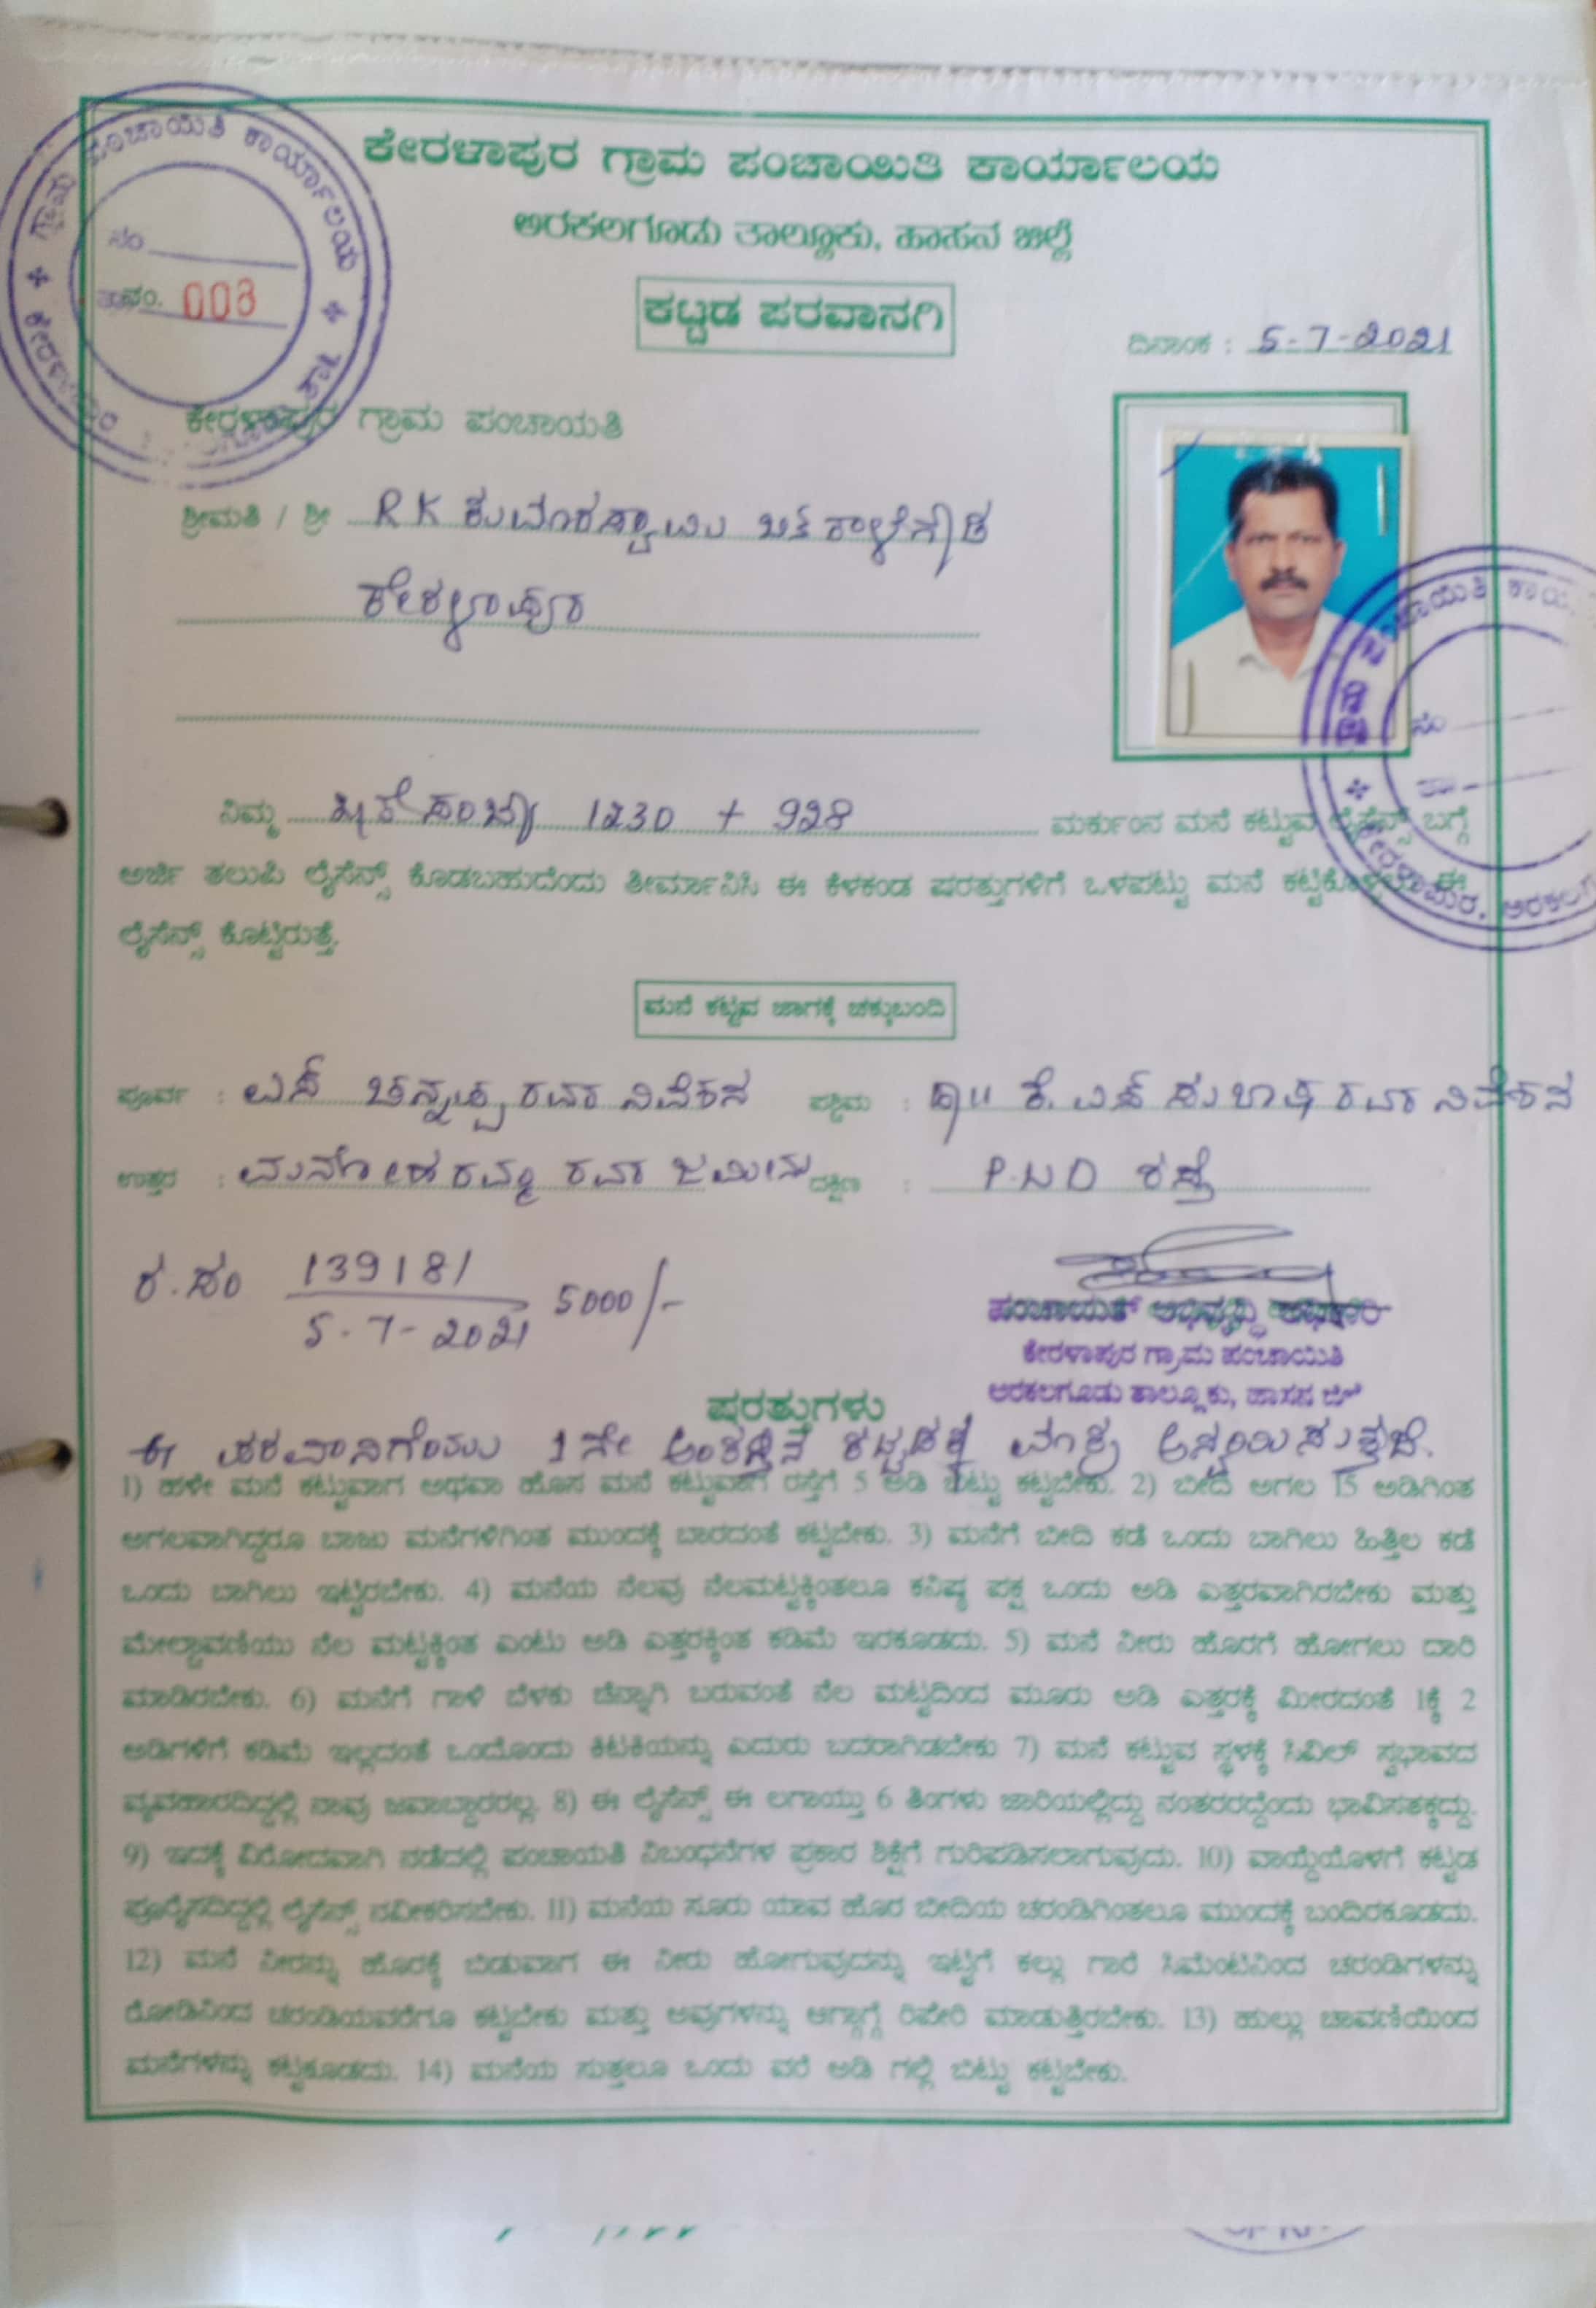 ಗ್ರಾಮ ಪಂಚಾಯಿತಿ ಕಾರ್ಯಾಲಯ
ಸಂ
ನಂ. 003
ಕೇರಳಾಪುರ ಗ್ರಾಮ ಪಂಚಾಯಿತಿ ಕಾರ್ಯಾಲಯ
ಅರಕಲಗೂಡು ತಾಲ್ಲೂಕು, ಹಾಸನ ಜಿಲ್ಲೆ
ಕಟ್ಟಡ ಪರವಾನಗಿ
ದಿನಾಂಕ : 5-7-2021
ಕೇರಳಾಪುರ ಗ್ರಾಮ ಪಂಚಾಯತಿ
ಶ್ರೀಮತಿ / ಶ್ರೀ R K ಕುಮಾರಸ್ವಾಮಿ ಬಿನ್ ಕಾಳೇಗೌಡ
ಕೇರಳಾಪುರ
ನಿಮ್ಮ ಖಾತೆ ಸಂಖ್ಯೆ 1230 + 928 ಮರ್ಕುಂನ ಮನೆ ಕಟ್ಟುವ ಲೈಸೆನ್ಸ್ ಬಗ್ಗೆ
ಅರ್ಜಿ ತಲುಪಿ ಲೈಸೆನ್ಸ್ ಕೊಡಬಹುದೆಂದು ತೀರ್ಮಾನಿಸಿ ಈ ಕೆಳಕಂಡ ಷರತ್ತುಗಳಿಗೆ ಒಳಪಟ್ಟು ಮನೆ ಕಟ್ಟಿಕೊಳ್ಳಲು ಈ
ಲೈಸೆನ್ಸ್ ಕೊಟ್ಟಿರುತ್ತೆ.
ಮನೆ ಕಟ್ಟುವ ಜಾಗಕ್ಕೆ ಚಕ್ಕುಬಂದಿ
ಪೂರ್ವ : ಎಸ್ ಚನ್ನಪ್ಪ ರವರ ನಿವೇಶನ ಪಶ್ಚಿಮ : ಡಾ|| ಕೆ. ಎಸ್ ಸುಭಾಷ ರವರ ನಿವೇಶನ
ಉತ್ತರ : ಮನೋಹರಮ್ಮ ರವರ ಜಮೀನು ದಕ್ಷಿಣ : P.W.D ರಸ್ತೆ
ರ.ಸಂ 139181 5000/-
5-7-2021
ಪಂಚಾಯತ್ ಅಭಿವೃದ್ಧಿ ಅಧಿಕಾರಿ
ಕೇರಳಾಪುರ ಗ್ರಾಮ ಪಂಚಾಯಿತಿ
ಅರಕಲಗೂಡು ತಾಲ್ಲೂಕು, ಹಾಸನ ಜಿಲ್ಲೆ
ಷರತ್ತುಗಳು
ಈ ಪರವಾನಿಗೆಯು 1ನೇ ಅಂತಸ್ತಿನ ಕಟ್ಟಡಕ್ಕೆ ಮಾತ್ರ ಅನ್ವಯಿಸುತ್ತದೆ.
1) ಹಳೇ ಮನೆ ಕಟ್ಟುವಾಗ ಅಥವಾ ಹೊಸ ಮನೆ ಕಟ್ಟುವಾಗ ರಸ್ತೆಗೆ 5 ಅಡಿ ಬಿಟ್ಟು ಕಟ್ಟಬೇಕು. 2) ಬೀದಿ ಅಗಲ 15 ಅಡಿಗಿಂತ
ಅಗಲವಾಗಿದ್ದರೂ ಬಾಜು ಮನೆಗಳಿಗಿಂತ ಮುಂದಕ್ಕೆ ಬಾರದಂತೆ ಕಟ್ಟಬೇಕು. 3) ಮನೆಗೆ ಬೀದಿ ಕಡೆ ಒಂದು ಬಾಗಿಲು ಹಿತ್ತಿಲ ಕಡೆ
ಒಂದು ಬಾಗಿಲು ಇಟ್ಟಿರಬೇಕು. 4) ಮನೆಯ ನೆಲವು ನೆಲಮಟ್ಟಕ್ಕಿಂತಲೂ ಕನಿಷ್ಠ ಪಕ್ಷ ಒಂದು ಅಡಿ ಎತ್ತರವಾಗಿರಬೇಕು ಮತ್ತು
ಮೇಲ್ಚಾವಣಿಯು ನೆಲ ಮಟ್ಟಕ್ಕಿಂತ ಎಂಟು ಅಡಿ ಎತ್ತರಕ್ಕಿಂತ ಕಡಿಮೆ ಇರಕೂಡದು. 5) ಮನೆ ನೀರು ಹೊರಗೆ ಹೋಗಲು ದಾರಿ
ಮಾಡಿರಬೇಕು. 6) ಮನೆಗೆ ಗಾಳಿ ಬೆಳಕು ಚೆನ್ನಾಗಿ ಬರುವಂತೆ ನೆಲ ಮಟ್ಟದಿಂದ ಮೂರು ಅಡಿ ಎತ್ತರಕ್ಕೆ ಮೀರದಂತೆ 1ಕ್ಕೆ 2
ಅಡಿಗಳಿಗೆ ಕಡಿಮೆ ಇಲ್ಲದಂತೆ ಒಂದೊಂದು ಕಿಟಕಿಯನ್ನು ಎದುರು ಬದರಾಗಿಡಬೇಕು 7) ಮನೆ ಕಟ್ಟುವ ಸ್ಥಳಕ್ಕೆ ಸಿವಿಲ್ ಸ್ವಭಾವದ
ವ್ಯವಹಾರದಿದ್ದಲ್ಲಿ ನಾವು ಜವಾಬ್ದಾರರಲ್ಲ. 8) ಈ ಲೈಸೆನ್ಸ್ ಈ ಲಗಾಯ್ತು 6 ತಿಂಗಳು ಜಾರಿಯಲ್ಲಿದ್ದು ನಂತರರದ್ದೆಂದು ಭಾವಿಸತಕ್ಕದ್ದು.
9) ಇದಕ್ಕೆ ವಿರೋದವಾಗಿ ನಡೆದಲ್ಲಿ ಪಂಚಾಯತಿ ನಿಬಂಧನೆಗಳ ಪ್ರಕಾರ ಶಿಕ್ಷೆಗೆ ಗುರಿಪಡಿಸಲಾಗುವುದು. 10) ವಾಯ್ದೆಯೊಳಗೆ ಕಟ್ಟಡ
ಪೂರೈಸದಿದ್ದಲ್ಲಿ ಲೈಸೆನ್ಸ್ ನವೀಕರಿಸಬೇಕು. 11) ಮನೆಯ ಸೂರು ಯಾವ ಹೊರ ಬೀದಿಯ ಚರಂಡಿಗಿಂತಲೂ ಮುಂದಕ್ಕೆ ಬಂದಿರಕೂಡದು.
12) ಮನೆ ನೀರನ್ನು ಹೊರಕ್ಕೆ ಬಿಡುವಾಗ ಈ ನೀರು ಹೋಗುವುದನ್ನು ಇಟ್ಟಿಗೆ ಕಲ್ಲು ಗಾರೆ ಸಿಮೆಂಟಿನಿಂದ ಚರಂಡಿಗಳನ್ನು
ರೋಡಿನಿಂದ ಚರಂಡಿಯವರೆಗೂ ಕಟ್ಟಬೇಕು ಮತ್ತು ಅವುಗಳನ್ನು ಆಗ್ಗಾಗ್ಗೆ ರಿಪೇರಿ ಮಾಡುತ್ತಿರಬೇಕು. 13) ಹುಲ್ಲು ಚಾವಣಿಯಿಂದ
ಮನೆಗಳನ್ನು ಕಟ್ಟಕೂಡದು. 14) ಮನೆಯ ಸುತ್ತಲೂ ಒಂದು ವರೆ ಅಡಿ ಗಲ್ಲಿ ಬಿಟ್ಟು ಕಟ್ಟಬೇಕು.